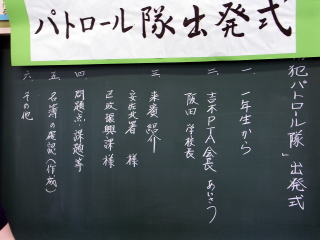 パトロール隊出発式
犯パトロール隊」出発式
一、一年生から
二、吉本PTA会長 あいさつ
阪田 学校長
三、来賓紹介
安佐北署 様
区政振興課 様
四、問題点・課題等
五、名簿の確認(作成)
六、その他